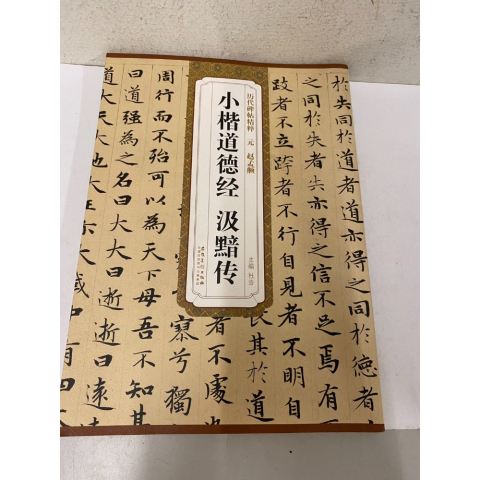 历代碑帖精粹 元 赵孟頫
小楷道德经 汲黯传
主编 杜浩
於失同於道者道亦得之同於德者
之同於失者失亦得之信不足焉有
跂者不立跨者不行自見者不明自
長其於道
者不處也
寥兮獨
周行而不殆可以為天下母吾不知其
曰道強為之名曰大大曰逝逝曰遠
道大天大地大王